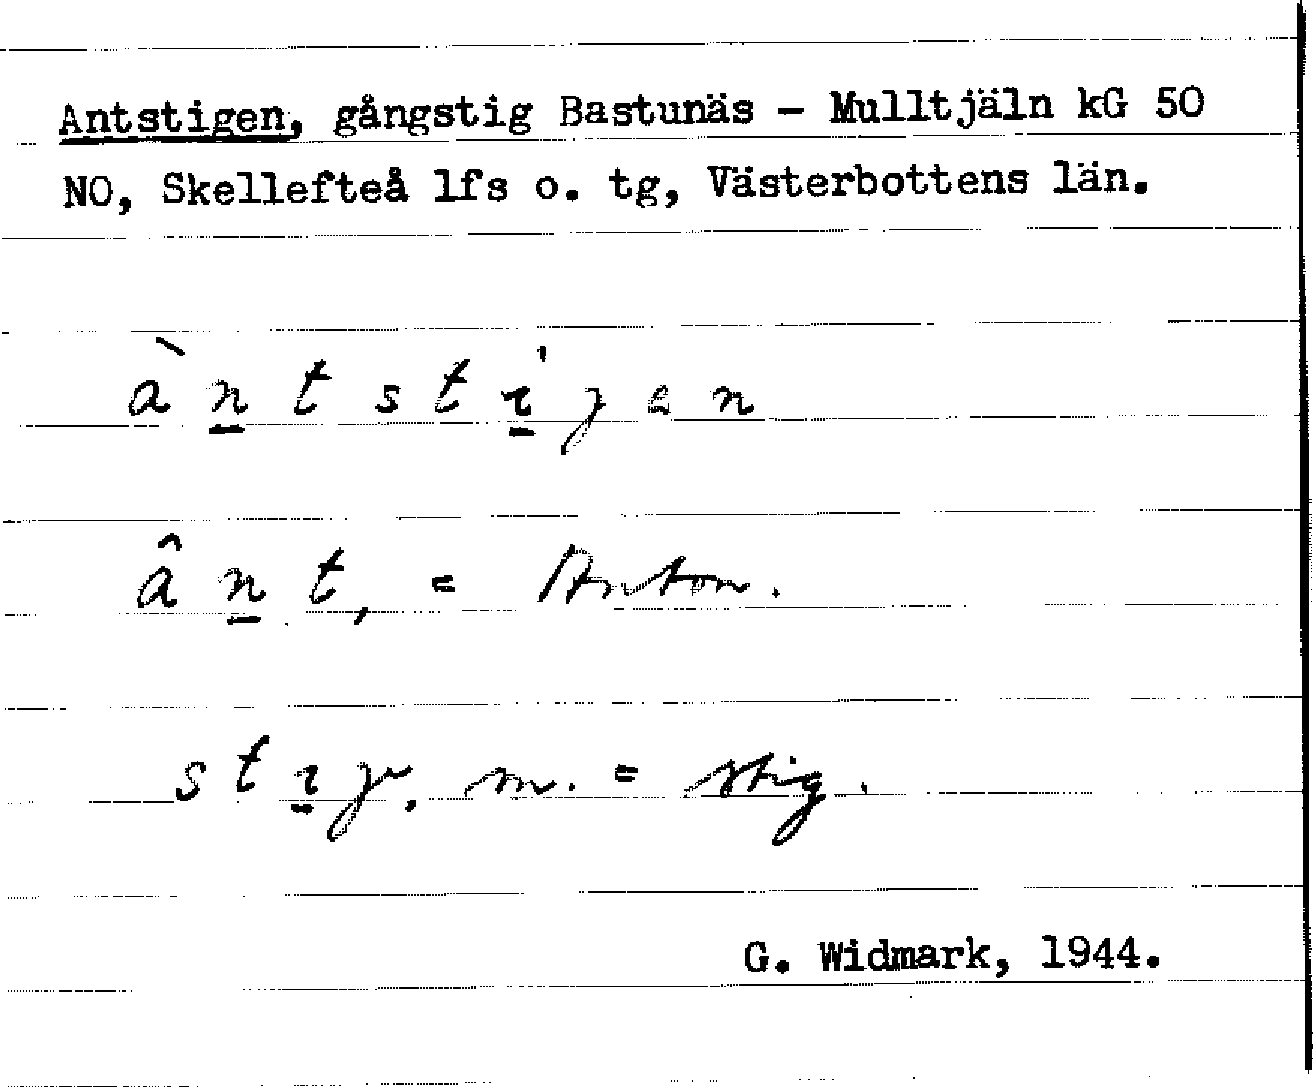 Antstigen, gångstig Bastunäs - Mulltjäln kG 50
NO, Skellefteå lfs o. tg, Västerbottens län.
àn̲tstɩ̲́gən
ân̲t, = Anton.
stɩ̲g. m. = stig.
G. Widmark, 1944.